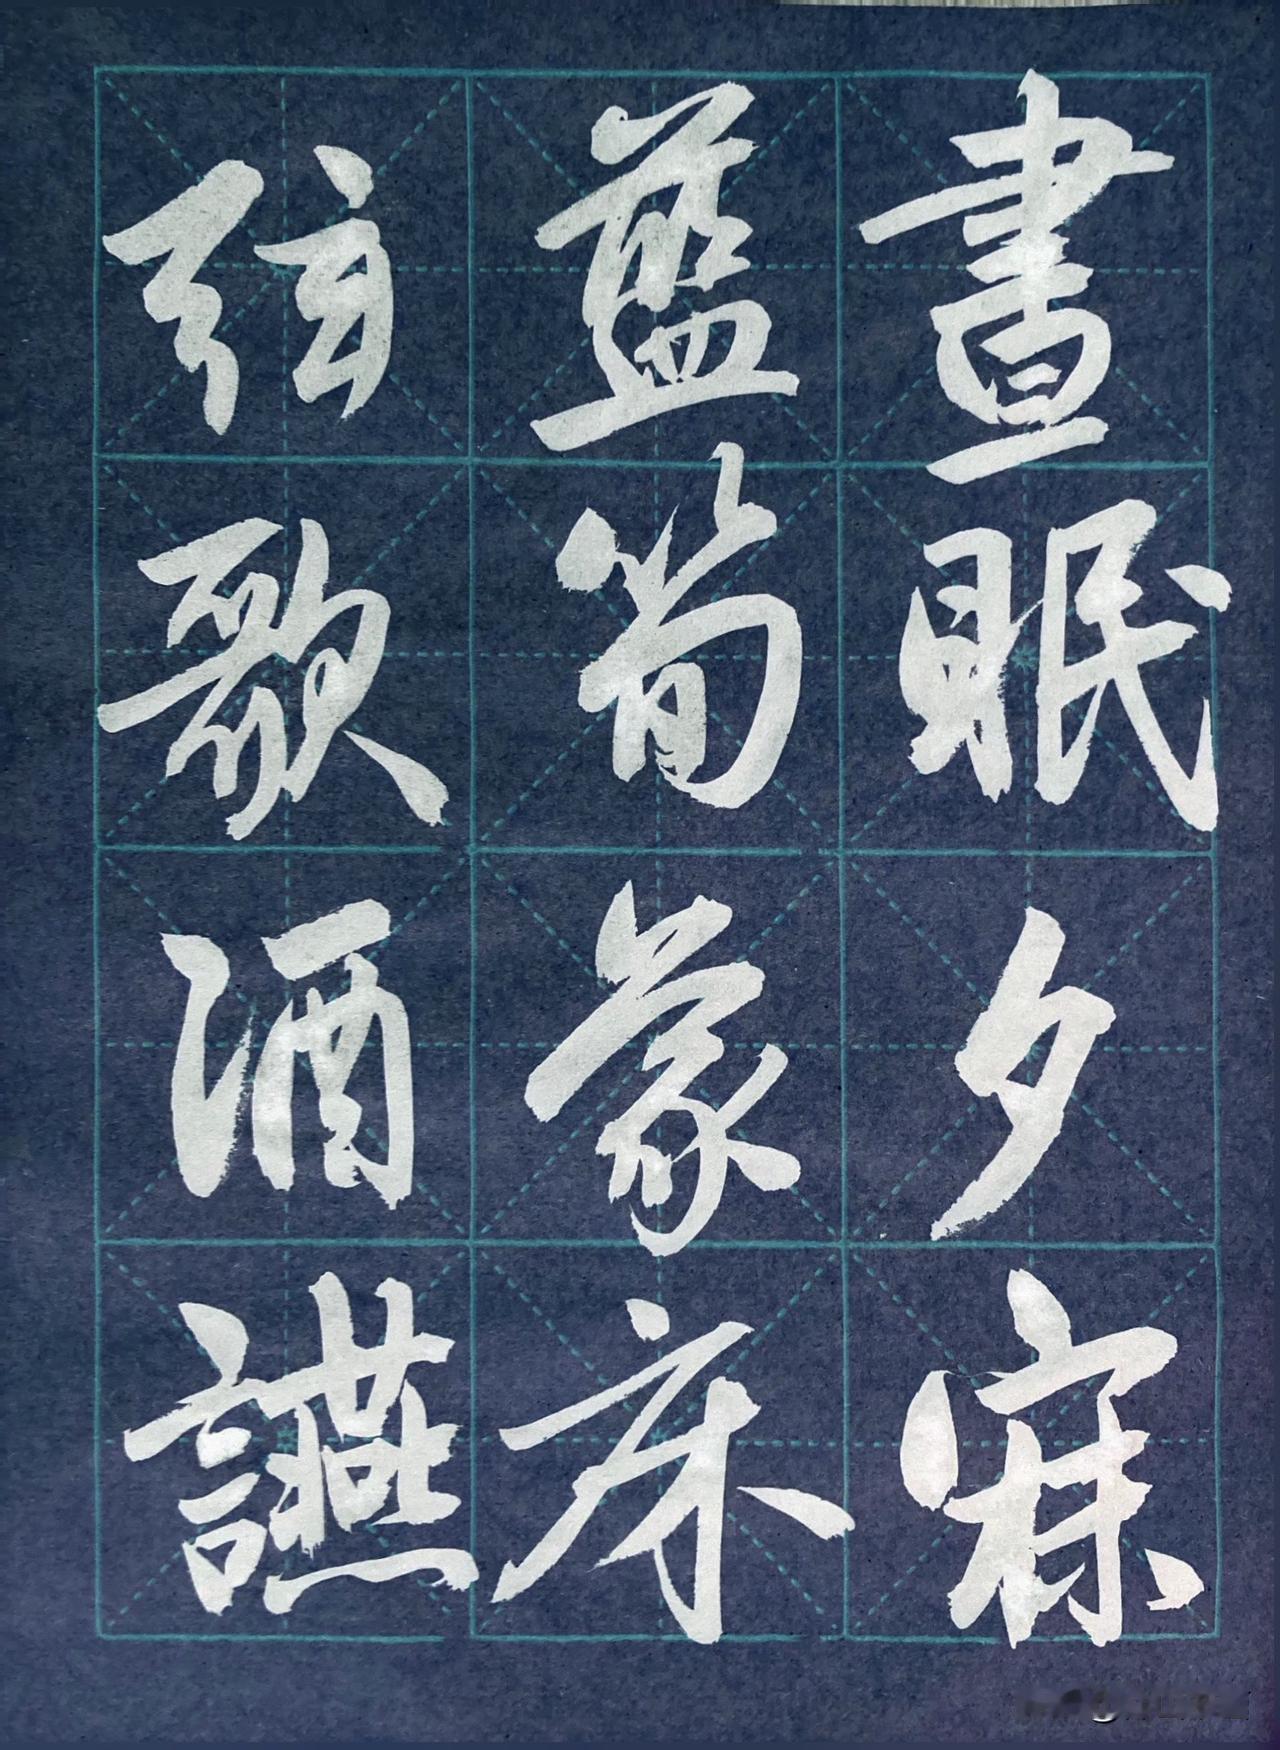 晝眠夕寐
藍筍象床
弦歌酒讌